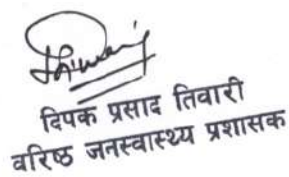 दिपक प्रसाद तिवारी
वरिष्ठ जनस्वास्थ्य प्रशासक